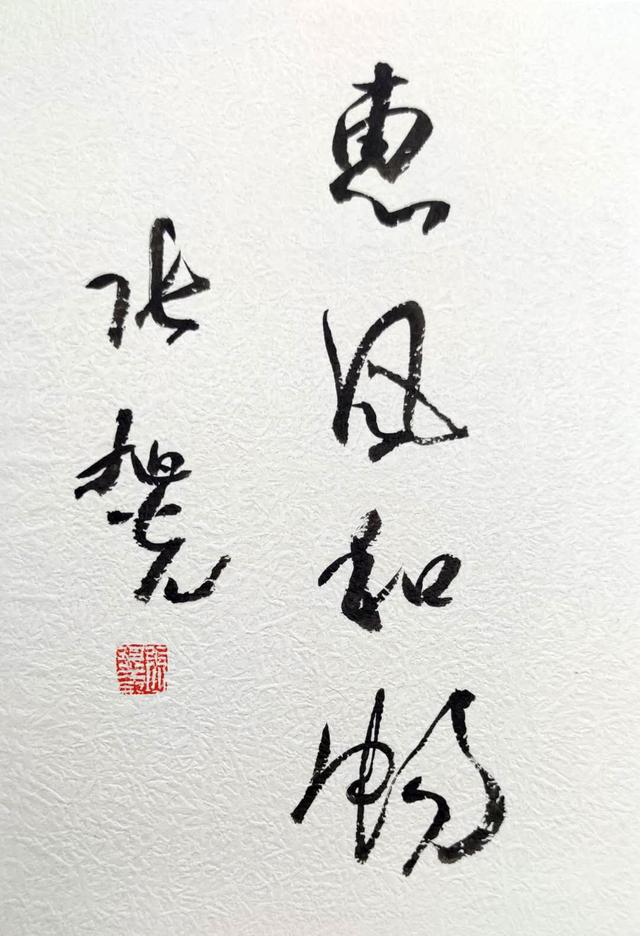 惠风和畅
张旭光